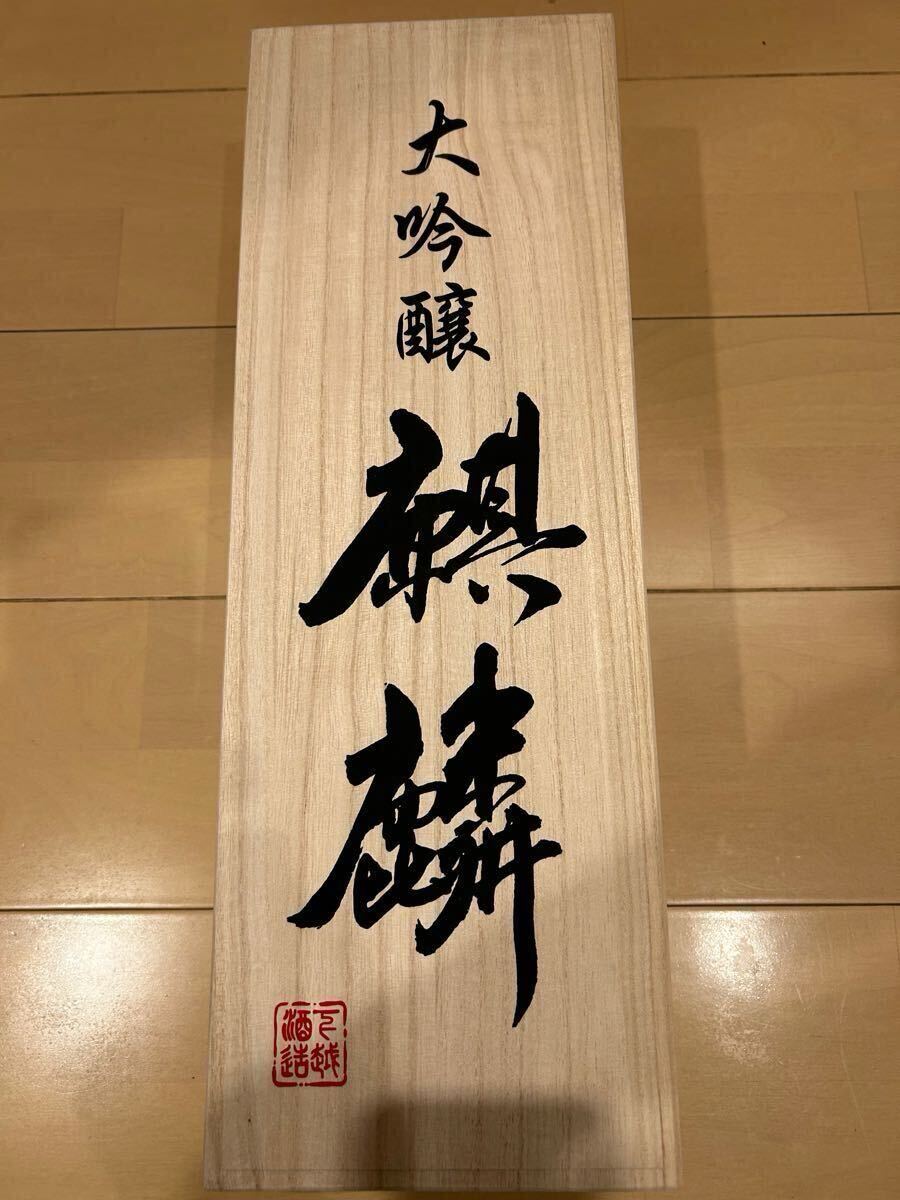 大吟醸
麒麟
下越
酒造